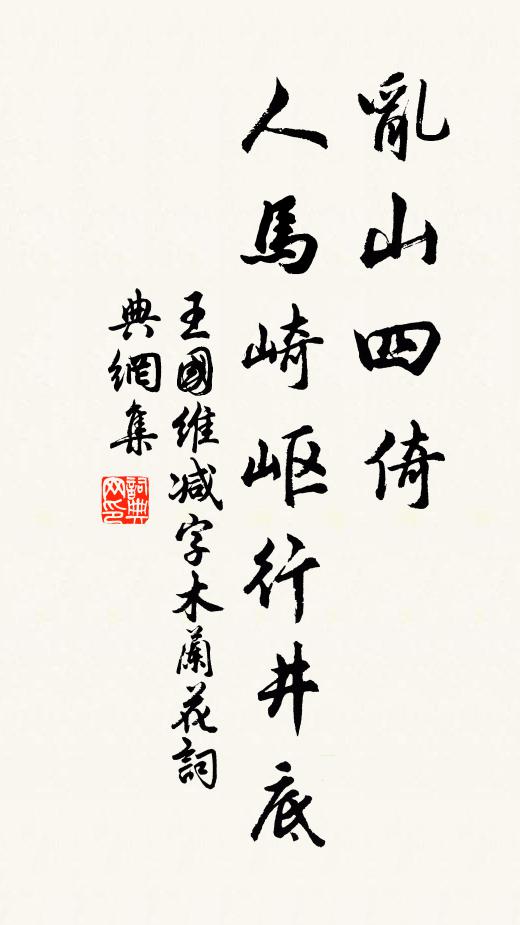 亂山四倚
人馬崎岖行井底
王國維减字木蘭花詞
典網集
詞典
网印